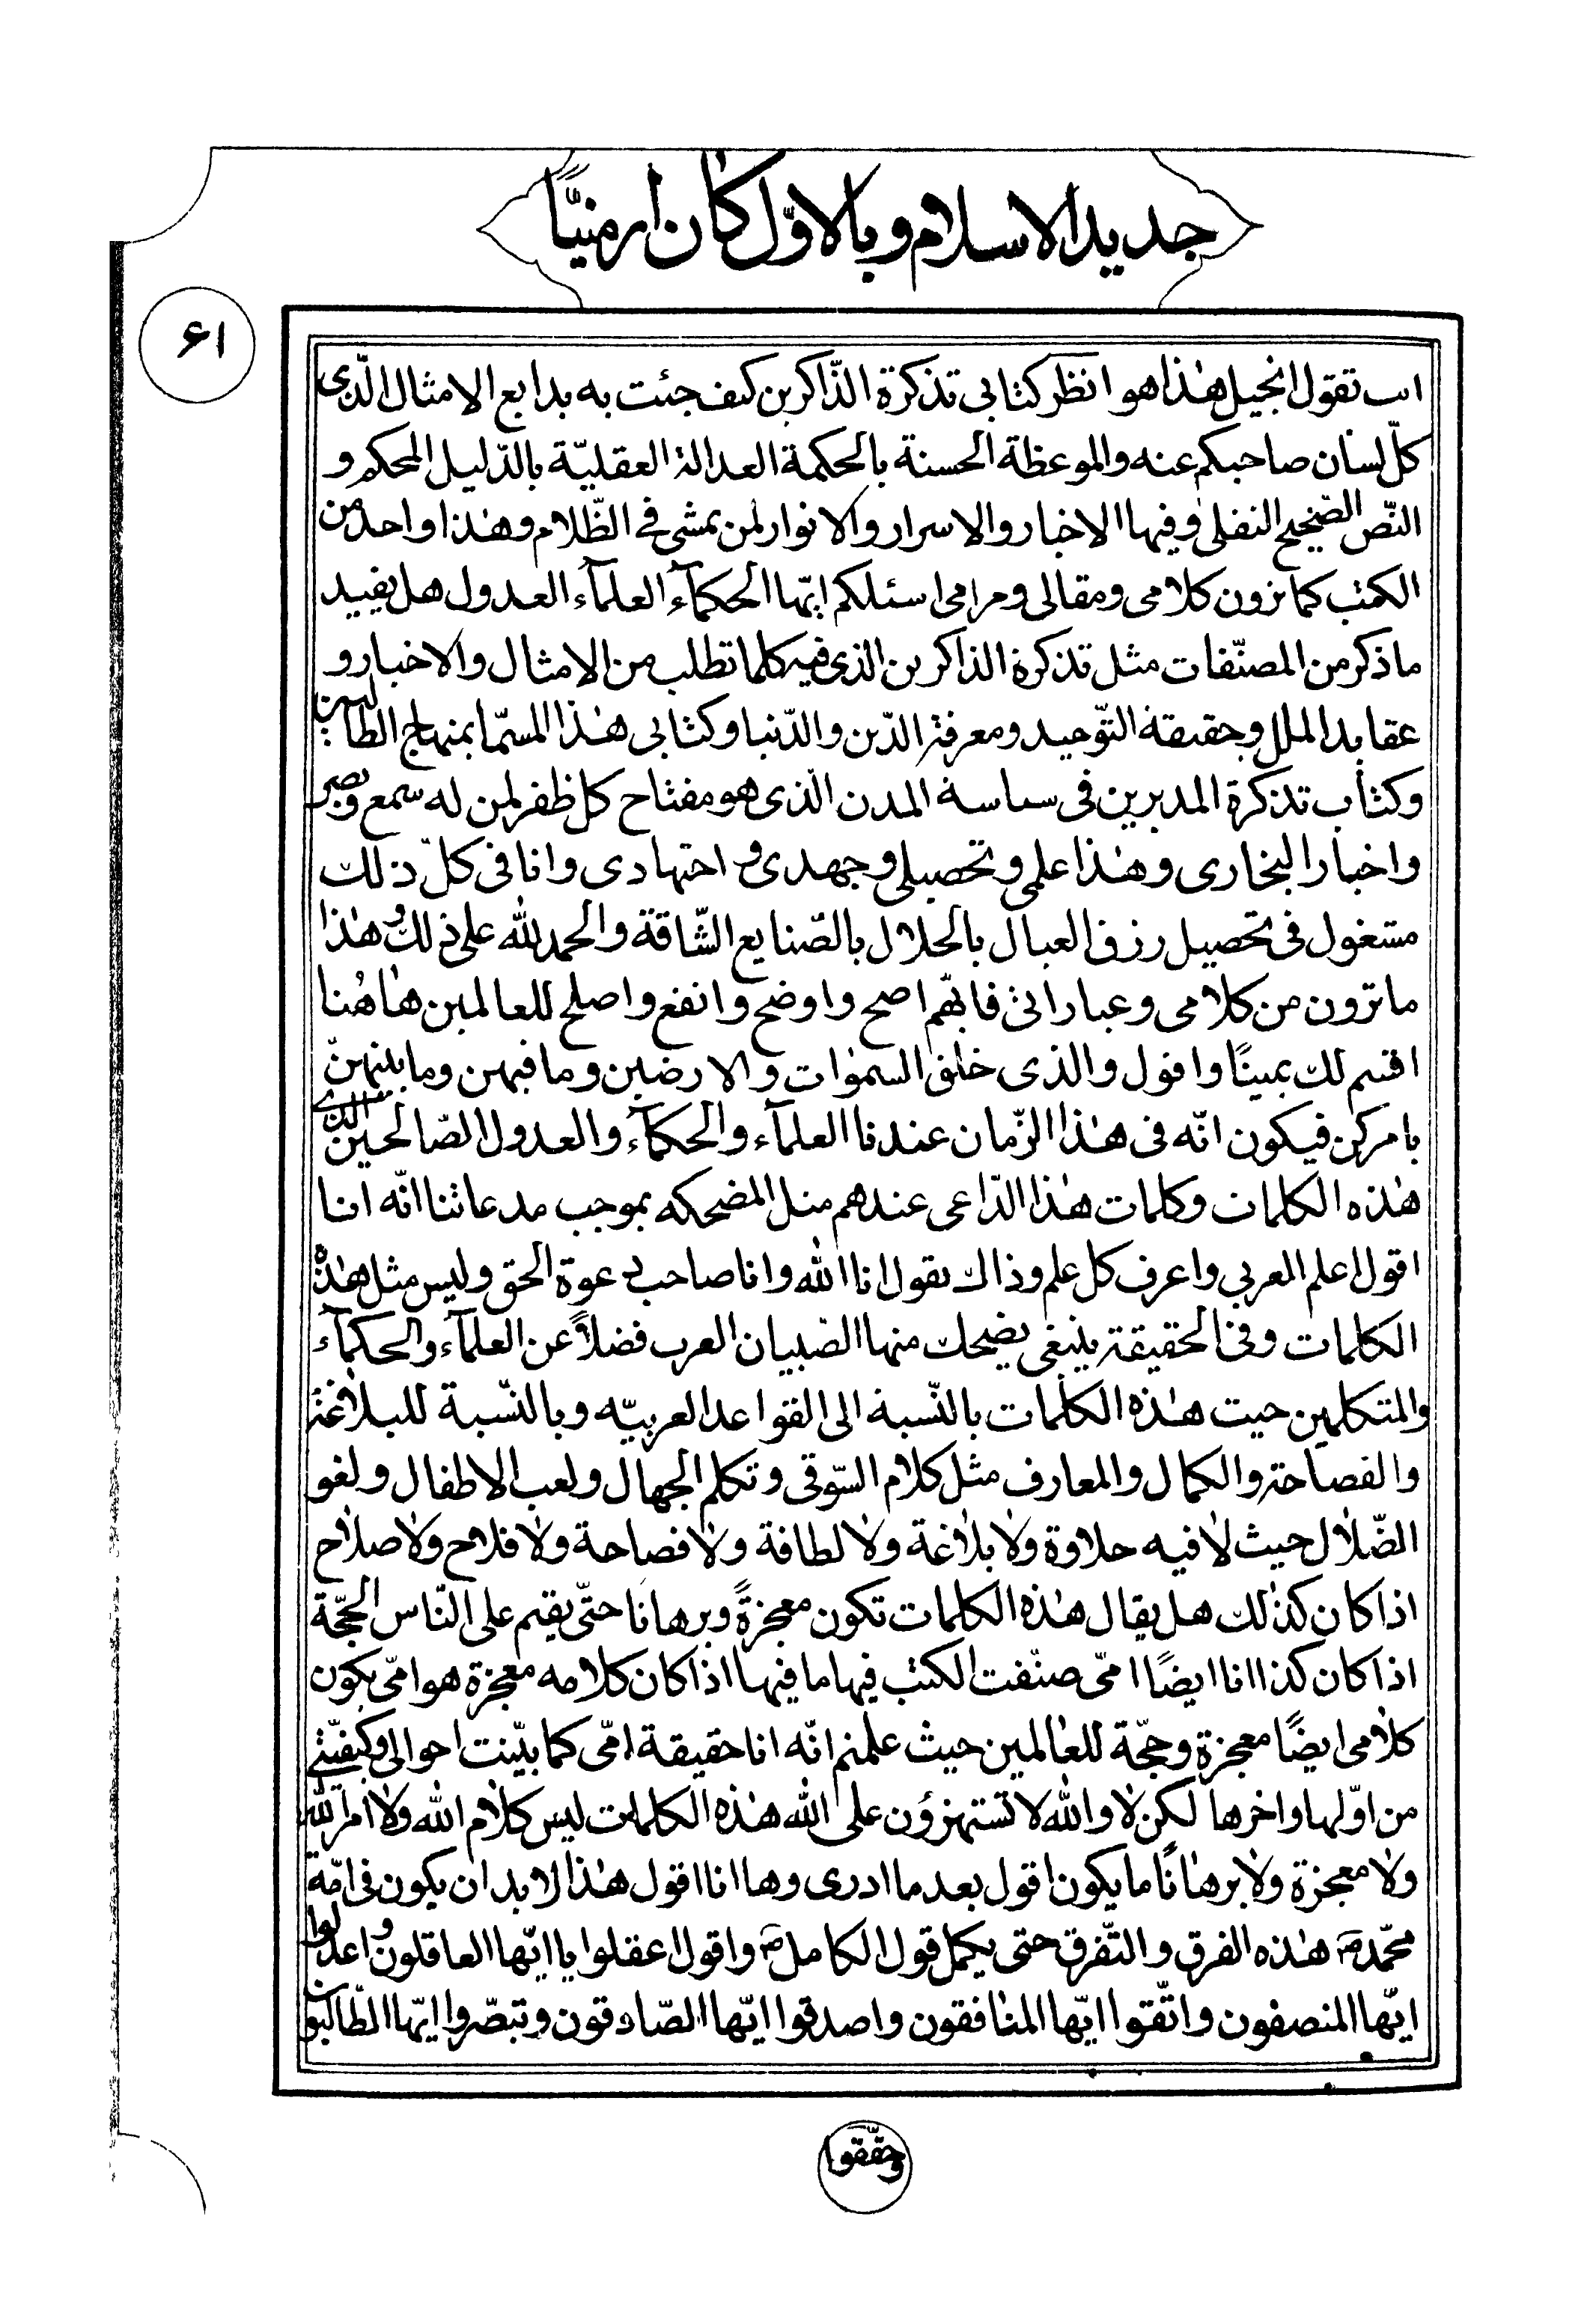 جديد الاسلام وبالاوّل كان ارمنيًّا
۶۱
انت تقول انجيل هٰذا هو انظر كتابى تذكرة الذّاكرين كيف جئت به بدايع الامثال الّذى
كلّ لسان صاحبكم عنه والموعظة الحسنة بالحكمة العدالة العقليّة بالدّليل المحكم و
النّص الصّحيح النقلى وفيها الاخبار والاسرار والانوار لمن يمشى فى الظّلام وهٰذا واحد من
الكتب كما ترون كلامى ومقالى ومرامى اسئلكم ايّها الحكمآء العلمآء العدول هل يفيد
ما ذكر من المصنّفات مثل تذكرة الذاكرين الذى فيه كلما تطلب من الامثال والاخبار و
عقايد الملل وحقيقة التّوحيد ومعرفة الدّين والدّنيا وكتابى هٰذا المسمّا بمنهاج الطالبين
وكتاب تذكرة المدبرين فى سياسة المدن الّذى هو مفتاح كل ظفر لمن له سمع وبصر
واخبار البخارى وهٰذا علمى وتحصيلى وجهدى و اجتهادى وانا فى كلّ ذلك
مشغول فى تحصيل رزق العيال بالحلال بالصّنايع الشّاقة والحمد لله على ذلك وهٰذا
ما ترون من كلامى وعباراتى فايّهم اصح واوضح وانفع واصلح للعالمين هٰاهُنا
اقسم لك يمينًا واقول والذى خلق السمٰوات والارضين وما فيهن وما بينهنّ
بامر كن فيكون انّه فى هٰذا الزّمان عندنا العلمآء والحكمآء والعدول الصّالحين الذى
هٰذه الكلمات وكلمات هٰذا الدّاعى عندهم مثل المضحكه بموجب مدعاتنا انّه انا
اقول اعلم العربى واعرف كل علم وذاك يقول انا الله وانا صاحب دعوة الحق وليس مثل هٰذه
الكلمات وفى الحقيقة ينبغى يضحك منها الصّبيان العرب فضلاً عن العلمآء والحكمآء
والمتكلمين حيث هٰذه الكلمات بالنّسبة الى القواعد العربيّه وبالنّسبة للبلاغة
والفصاحة والكمال والمعارف مثل كلام السّوقى وتكلم الجهال ولعب الاطفال ولغو
الضّلال حيث لا فيه حلاوة ولا بلاغة ولا لطافة ولا فصاحة ولا فلاح ولا صلاح
اذا كان كذلك هل يقال هٰذه الكلمات تكون معجزةً وبرهانًا حتّى يقيم على النّاس الحجّة
اذا كان كذا انا ايضًا امّى صنّفت الكتب فيها ما فيها اذا كان كلامه معجزة هو امّى يكون
كلامى ايضًا معجزة وحجّة للعالمين حيث علمتم انّه انا حقيقة امّى كما بيّنت احوالى وكيفيّتى
من اوّلها واخرها لكن لا والله لا تستهزؤن على الله هٰذه الكلمات ليس كلام الله ولا امر الله
ولا معجزة ولا برهانًا ما يكون اقول بعد ما ادرى وها انا اقول هٰذا لابد ان يكون فى امّة
محمّد ص هٰذه الفرق والتّفرق حتى يكمل قول الكامل ص واقول اعقلوا يا ايّها العاقلون واعدلوا
ايّها المنصفون واتّقوا ايّها المنافقون واصدقوا ايّها الصّادقون وتبصّروا ايّها الطّالبون
وحقّقوا